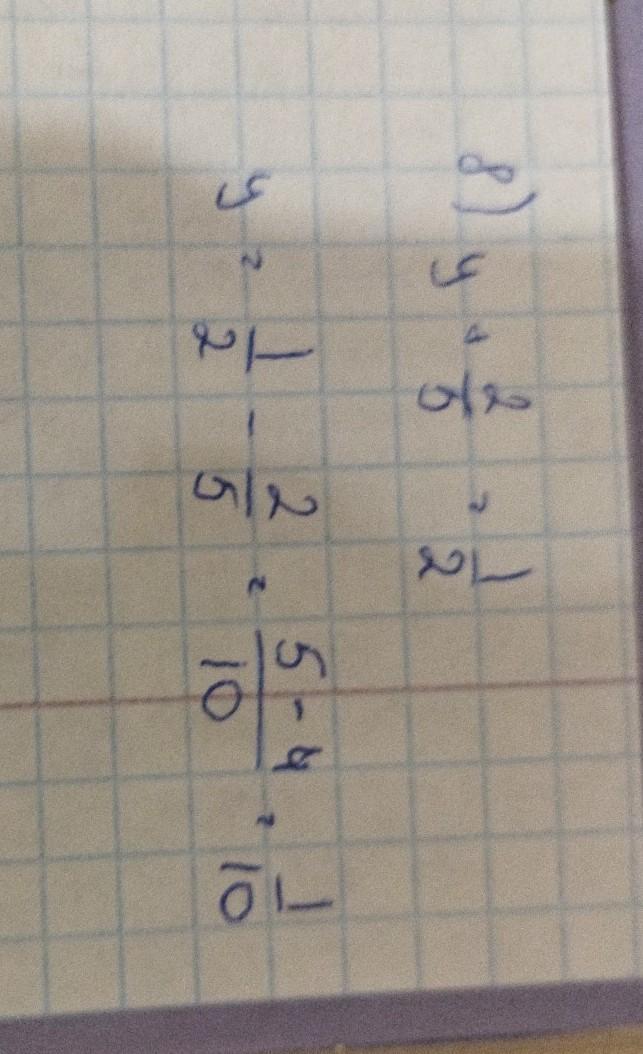 8) y + 2/5 = 1/2
y = 1/2 - 2/5 = 5-4/10 = 1/10